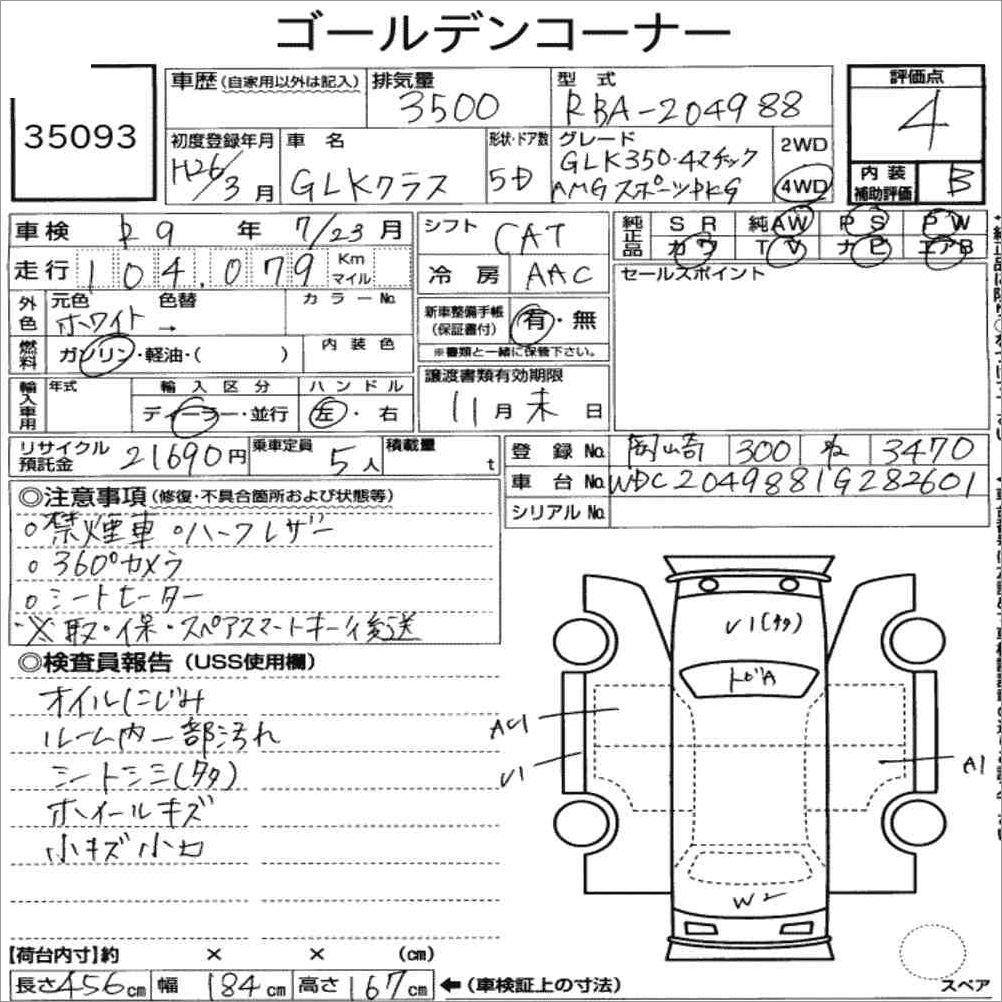 ゴールデンコーナー
35093
車歴 (自家用以外は記入)
排気量 3500
型式 RBA-204988
評価点 4
初度登録年月 H26/3月
車名 GLKクラス
形状・ドア数 5D
グレード GLK350・4マチック
AMGスポーツPKG
2WD
4WD
内装補助評価 B
車検 R9年 7/23月
走行 104.079 Km マイル
シフト CAT
冷房 AAC
純正品 SR 純AW PS PW
カワ TV ナビ エアB
セールスポイント
外色 元色 ホワイト 色替 → カラーNo.
燃料 ガソリン・軽油・( ) 内装色
新車整備手帳(保証書付) 有・無
※書類と一緒に保管下さい。
輸入車用 年式 輸入区分 ディーラー・並行 ハンドル 左・右
譲渡書類有効期限 11月末日
リサイクル預託金 21690円 乗車定員 5人 積載量 t
登録No. 岡崎 300 ね 3470
車台No. WDC2049881G282601
シリアルNo.
◎注意事項(修復・不具合箇所および状態等)
○禁煙車 ○ハーフレザー
○360°カメラ
○シートヒーター
※取・保・スペアスマートキー1ヶ後送
◎検査員報告(USS使用欄)
オイルにじみ
ルーム内一部汚れ
シートシミ(タタ)
ホイールキズ
小キズ小凹
U1(タタ)
トビA
AU1
U1
A1
W2
【荷台内寸】約 × × (cm)
長さ456cm 幅184cm 高さ167cm ←(車検証上の寸法)
スペア